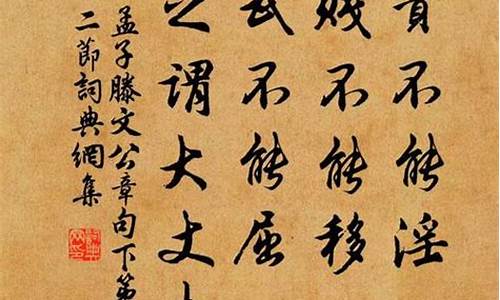 貴不能淫
賤不能移
武不能屈
之謂大丈
孟子滕文公章句下第
二節詞典網集